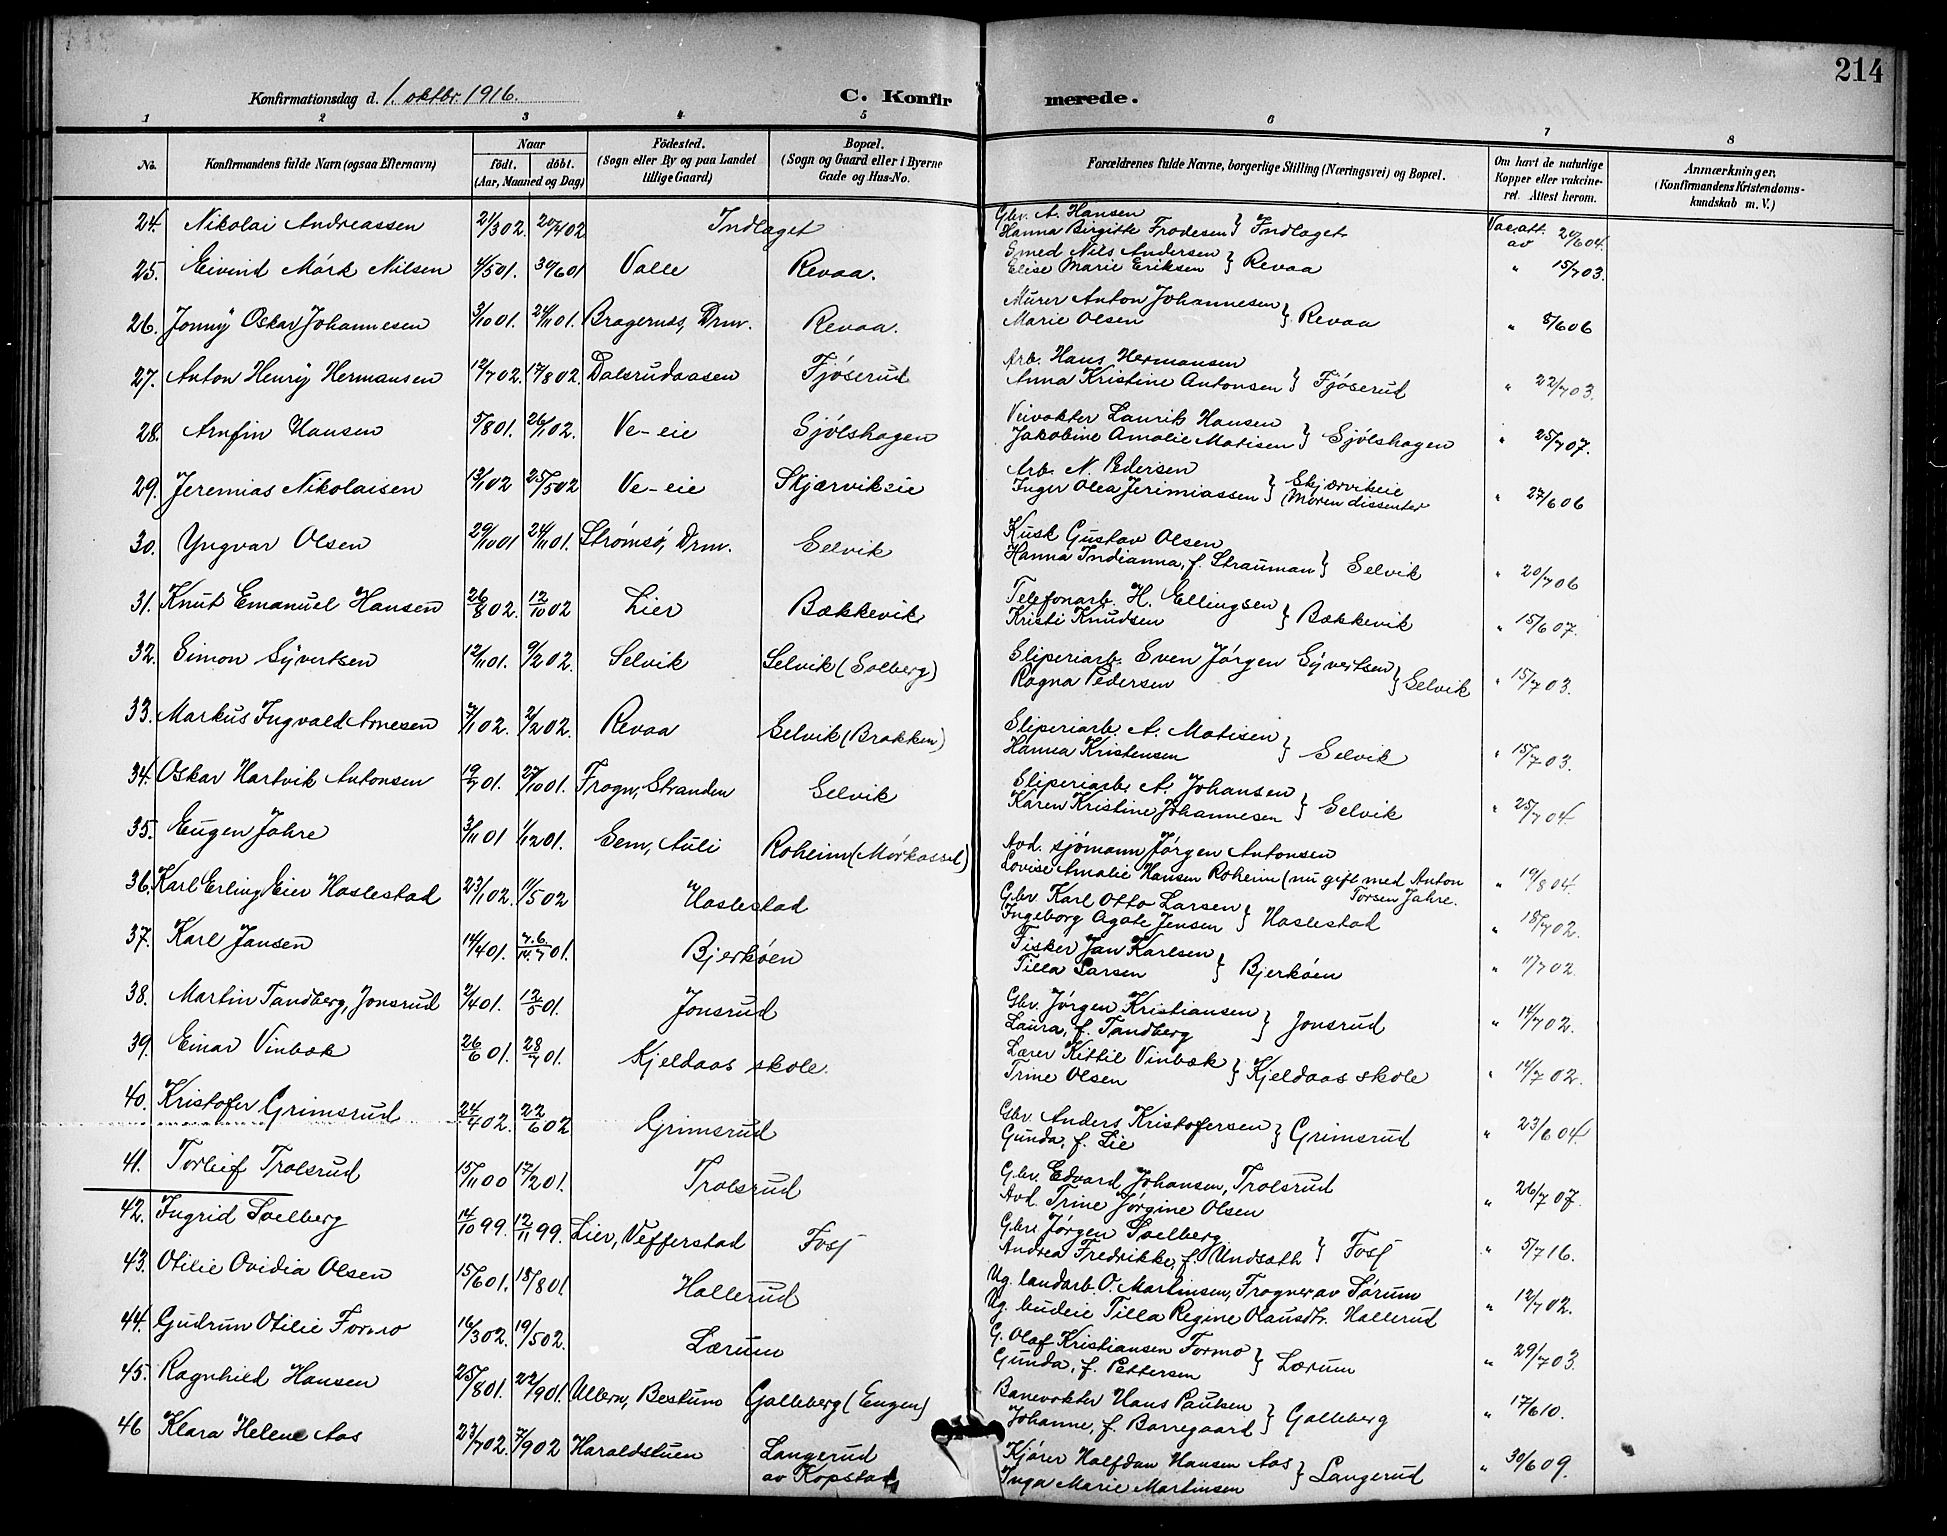 214
Konfirmationsdag d. 1. oktbr. 1916.
C. Konfirmerede.
1 2 3 4 5 6 7 8
No.
Konfirmandens fulde Navn (ogsaa Efternavn)
Naar
født. døbt.
(Aar, Maaned og Dag)
Fødested.
(Sogn eller By og paa Landet
tillige Gaard)
Bopæl.
(Sogn og Gaard eller i Byerne
Gade og Hus-No.
Forældrenes fulde Navne, borgerlige Stilling (Næringsvei) og Bopæl.
Om havt de naturlige
Kopper eller vakcine-
ret. Attest herom.
Anmærkninger,
(Konfirmandens Kristendoms-
kundskab m. V.)
24. Nikolai Andreassen 21/3 02. 20/4 02 Indlaget Gbr. A. Hansen Vac.att.
Hanna Birgitte Frodesen } Indlaget av 20/6 04.
25. Eivind Mørk Nilsen 4/5 01. 30/6 01 Valle Revaa. Smed Nils Andersen
Elise Marie Eriksen } Revaa " 15/7 03.
26. Jonny Oskar Johannesen 3/10 01. 24/11 01. Bragernes, Drm. Revaa. Murer Anton Johannesen
Marie Olsen } Revaa " 8/6 06
27. Anton Henry Hermansen 12/7 02. 17/8 02. Dalsrudaasen Fjøserud Arb. Hans Hermansen
Anna Kristine Antonsen } Fjøserud " 22/7 03.
28. Arnfin Hansen 5/8 01. 26/1 02. Ve-eie Sjølshagen Veivokter Laurits Hansen
Jakobine Amalie Matisen } Sjølshagen " 25/7 07.
29. Jeremias Nikolaisen 13/1 02 25/5 02 Ve-eie Skjærvikeie Arb. N. Pedersen
Inger Olea Jerimiassen } Skjærvikeie
(Moren dissenter " 27/6 06
30. Yngvar Olsen 29/10 01 24/11 01. Strømsø, Drm. Selvik Kusk Gustav Olsen
Hanna Indianna, f. Strauman } Selvik " 20/7 06
31. Knut Emanuel Hansen 26/8 02. 12/10 02 Lier Bækkevik Telefonarb. H. Ellingsen
Kristi Knudsen } Bækkevik " 15/6 07.
32. Simon Syvertsen 12/11 01. 9/2 02. Selvik Selvik (Solberg) Sliperiarb. Sven Jørgen Syvertsen
Ragna Pedersen } Selvik " 15/7 03.
33. Markus Ingvald Arnesen 7/1 02. 2/2 02. Revaa Selvik (Brakken) Sliperiarb. A. Matisen
Hanna Kristensen } Selvik " 15/7 03.
34. Oskar Hartvik Antonsen 19/7 01. 27/10 01. Frogn, Stranden Selvik Sliperiarb. A. Johansen
Karen Kristine Johannesen } Selvik " 25/7 04.
35. Eugen Jahre 3/11 01 1/12 01. Sem, Auli Roheim (Mørkassel) Avd. sjømann Jørgen Antonsen
Lovise Amalie Hansen Roheim (nu gift med Anton
Torsen Jahre. " 19/8 04.
36. Karl Erling Eier Haslestad 23/1 02. 11/5 02 Haslestad Gbr. Karl Otto Larsen
Ingeborg Agate Jensen } Haslestad " 18/7 02.
37. Karl Jansen 14/4 01. 7.6/14.7 01. Bjerkøen Fisker Jan Karlsen
Tilla Larsen } Bjerkøen " 11/7 02.
38. Martin Tandberg, Jonsrud 2/4 01. 12/5 01. Jonsrud Gbr. Jørgen Kristiansen
Laura, f. Tandberg } Jonsrud " 14/7 02.
39. Einar Vinbæk 26/6 01. 28/7 01. Kjeldaas skole. Lærer Kittil Vinbæk
Trine Olsen } Kjeldaas skole " 14/7 02.
40. Kristofer Grimsrud 24/4 02. 22/6 02 Grimsrud Gbr. Anders Kristofersen
Gunda, f. Lie } Grimsrud " 23/6 04
41. Torleif Trolsrud 15/11 00 17/2 01. Trolsrud Gbr. Edvard Johansen, Trolsrud
Avd. Trine Jørgine Olsen " 26/7 07.
42. Ingrid Solberg 14/10 99. 12/11 99. Lier, Vefferstad Foss Gbr. Jørgen Solberg
Andrea Fredrikke, f. Undsath } Foss " 5/7 16.
43. Otilie Ovidia Olsen 15/6 01. 18/8 01 Hallerud Ug. landarb. O. Martinsen, Frogner av Sørum
Ug. budeie Tilla Regine Olausdtr. Hallerud " 12/7 02.
44. Gudrun Otilie Formo 16/3 02. 19/5 02. Lærum G. Olaf Kristiansen Formo
Gunda, f. Pettersen } Lærum " 29/7 03.
45. Ragnhild Hansen 25/8 01. 22/9 01. Ullern, Bestum Galleberg (Engen) Banevokter Hans Paulsen
Johanne, f. Borregaard } Galleberg " 17/6 10.
46 Klara Helene Aas 23/7 02. 7/9 02 Haraldstuen Langerud
av Kopstad Kjører Halfdan Hansen Aas
Inga Marie Martinsen } Langerud " 30/6 09.